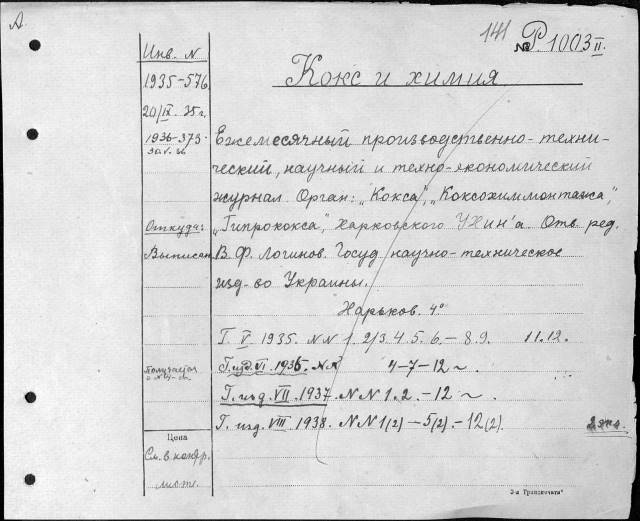 А.
141 № Р.1003 II.
Кокс и химия
Инв. N
1935-576
20/IX 35 г.
1936-375
Откуда:
Выписан
Ежемесячный производственно-техни-
ческий, научный и техно-экономический
журнал. Орган: „Кокса", „Коксохиммонтажа",
„Гипрококса", Харковского УХин'а. Отв. ред.
В. Ф. Логинов. Госуд. научно-техническое
изд-во Украины.
Харьков. 4°
Г. V 1935. NN 1. 2/3. 4. 5. 6. – 8. 9. 11. 12.
Г. изд. VI. 1936. NN 4-7-12 ~.
Г. изд. VII. 1937. NN 1. 2. – 12 ~.
Г. изд. VIII 1938. NN 1(2) – 5(2). – 12(2).
2 экз.
Получается
Цена
См. в конф.
лист.
3-я Транспечати"